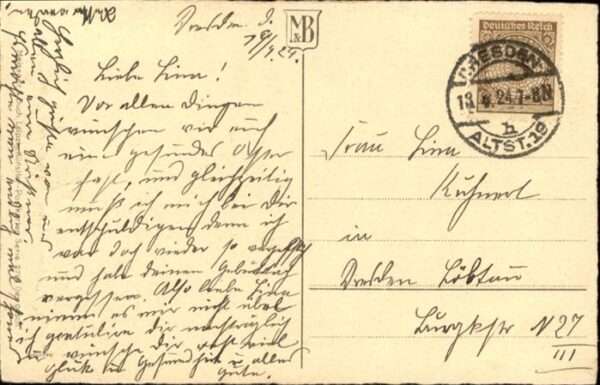 Dresden d.
18/4.24.
Liebe Lina!
Vor allen Dingen
wünschen wir euch
ein gesundes Oster
fest, und gleichzeitig
muß ich mich bei Dir
entschuldigen, denn ich
war doch wieder so vergeßlich
und habe deinen Geburtstag
vergessen. Also liebe Lina
nimm es mir nicht übel
ich gratulire dir nachträglich
u. wünsche dir recht viel
Glück u. Gesundheit u. alles
Gute.
Herzlich grüßen
M&B
Deutsches Reich
DRESDEN
18.4.24.7-8N
h
ALTST.19
Frau Lina
Kuhnert
in
Dresden Löbtau
Burgkstr N 27
III